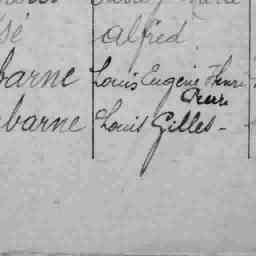 sé alfred
barne Louis Eugène Henri
Pierre
barne Louis Gilles -